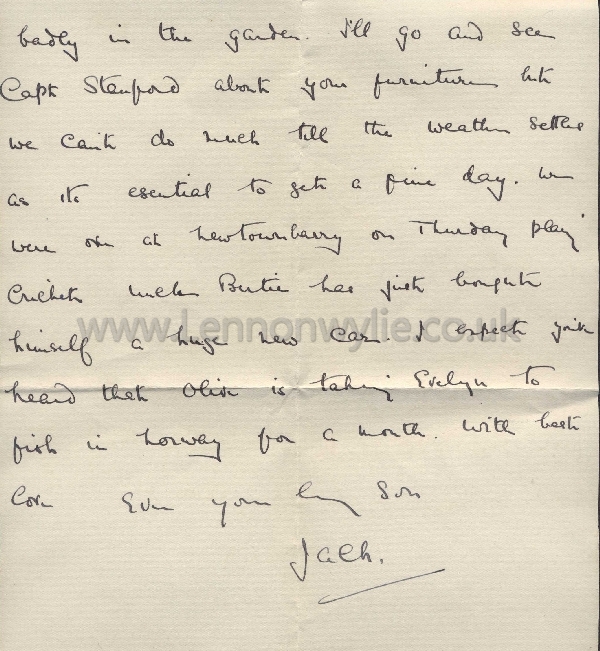 badly in the garden. I'll go and see
Capt Stanford about your furniture but
we can't do much till the weather settles
as its esential to get a fine day. We
were over at Newtownbarry on Thursday play'
Cricket Uncle Bertie has just bought
www.Lennonwylie.co.uk
himself a huge new car. I expect you've
heard that Olive is taking Evelyn to
fish in Norway for a month. With best
love Ever your loving Son
Jack.